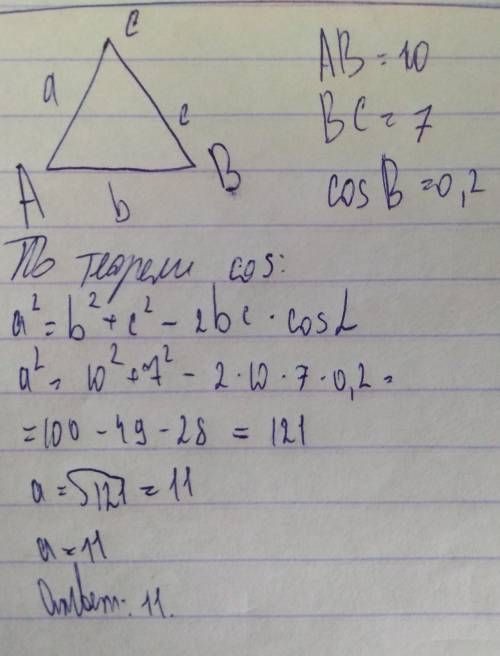 C
a
c
A
B
b
AB = 10
BC = 7
cos B = 0,2
По теореми cos:
a² = b² + c² - 2bc · cos L
a² = 10² + 7² - 2 · 10 · 7 · 0,2 =
= 100 - 49 - 28 = 121
a = √121 = 11
a = 11
Ответ: 11.